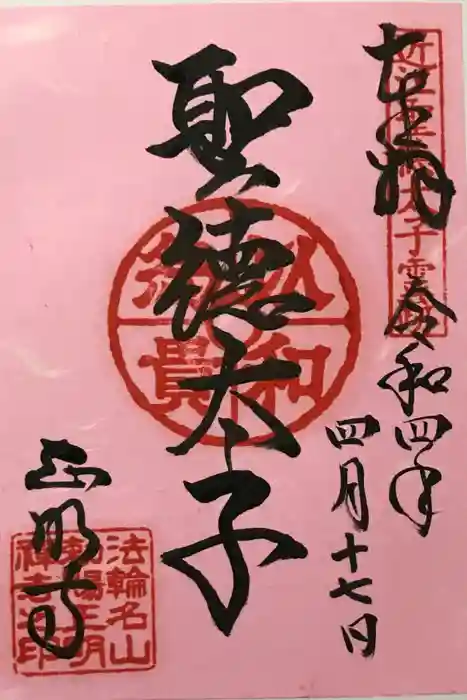 奉拝
近江聖徳太子霊場
令和四年
四月十七日
聖徳太子
以和
為貴
正明寺
法輪名山
勅賜正明
禅寺之印